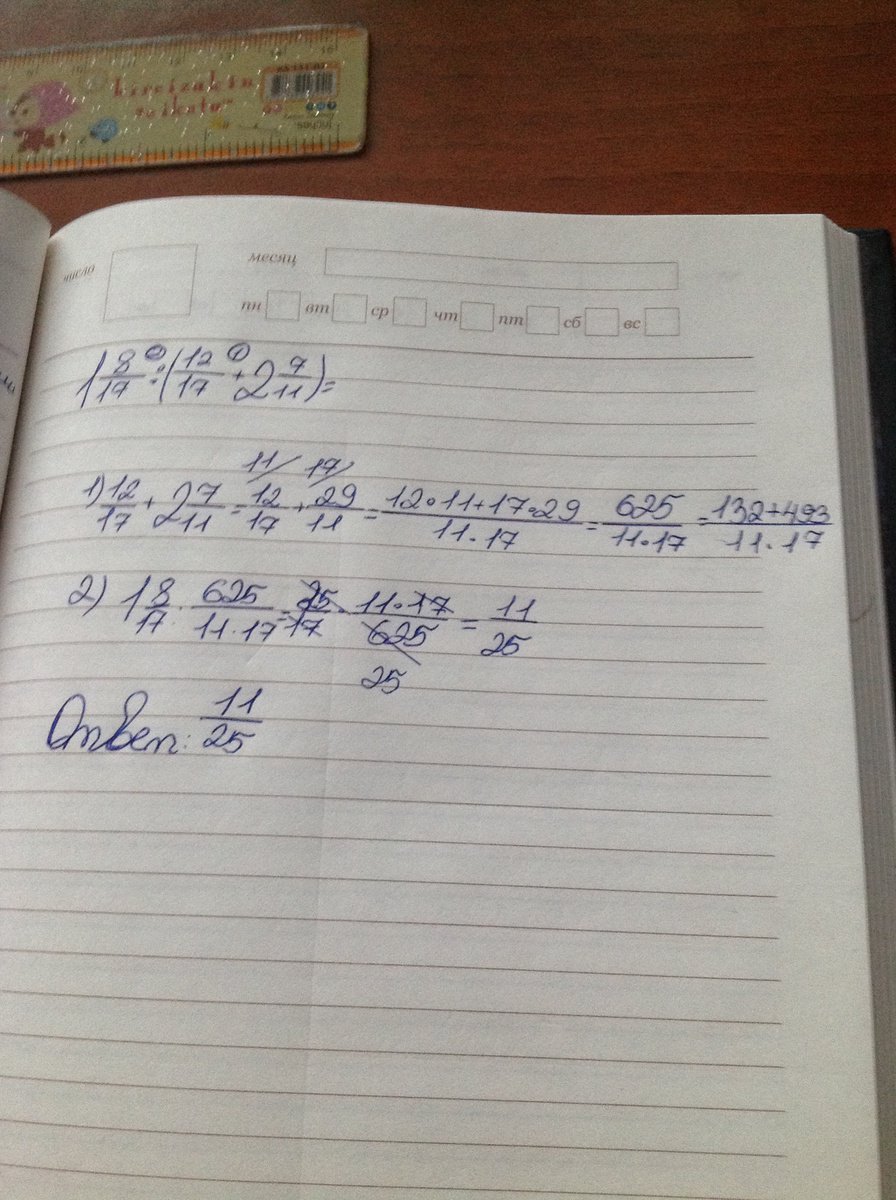 kireizukin
seikatu
число месяц
пн вт ср чт пт сб вс
1 8/17 : (12/17 + 2 7/11) =
11/ 17/
1) 12/17 + 2 7/11 = 12/17 + 29/11 = 12•11+17•29/11.17 = 625/11.17 = 132+493/11.17
2) 1 8/17 : 625/11.17 = 25/17 · 11•17/625 = 11/25
25
Ответ: 11/25